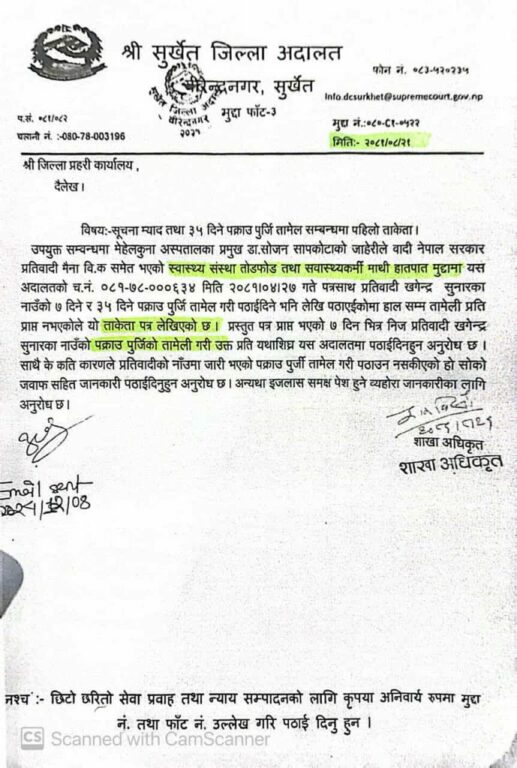 श्री सुर्खेत जिल्ला अदालत
वीरेन्द्रनगर, सुर्खेत
फोन नं. ०८३-५२०२३५
Info.dcsurkhet@supremecourt.gov.np
मुद्दा फाँट-३
प.सं. ०८१/०८२
मुद्दा नं.:०८०-C१-०५२२
चलानी नं. :-080-78-003196
मिति:- २०८१/०८/२१
श्री जिल्ला प्रहरी कार्यालय,
दैलेख।
विषय:-सूचना म्याद तथा ३५ दिने पक्राउ पुर्जि तामेल सम्बन्धमा पहिलो ताकेता।
उपयुक्त सम्बन्धमा मेहेलकुना अस्पतालका प्रमुख डा.सोजन सापकोटाको जाहेरीले वादी नेपाल सरकार
प्रतिवादी मैना वि.क समेत भएको स्वास्थ्य संस्था तोडफोड तथा सवास्थ्यकर्मी माथी हातपात मुद्दामा यस
अदालतको च.नं. ०८१-७८-०००६३४ मिति २०८१।०४।२७ गते पत्रसाथ प्रतिवादी खगेन्द्र सुनारका
नाउँको ७ दिन र ३५ दिने पक्राउ पुर्जि तामेल गरी पठाईदिने भनि लेखि पठाएईकोमा हाल सम्म तामेली प्रति
प्राप्त नभएकोले यो ताकेता पत्र लेखिएको छ। प्रस्तुत पत्र प्राप्त भएको ७ दिन भित्र निज प्रतिवादी खगेन्द्र
सुनारका नाउँको पक्राउ पुर्जिको तामेली गरी उक्त प्रति यथाशिघ्र यस अदालतमा पठाईदिनहुन अनुरोध छ।
साथै के कति कारणले प्रतिवादीको नाँउमा जारी भएको पक्राउ पुर्जी तामेल गरी पठाउन नसकीएको हो सोको
जवाफ सहित जानकारी पठाईदिनुहुन अनुरोध छ। अन्यथा इजलास समक्ष पेश हुने व्यहोरा जानकारीका लागि
अनुरोध छ।
शाखा अधिकृत
शाखा अधिकृत
Email sent
नश्च :- छिटो छरितो सेवा प्रवाह तथा न्याय सम्पादनको लागि कृपया अनिवार्य रुपमा मुद्दा
नं. तथा फाँट नं. उल्लेख गरि पठाई दिनु हुन ।
CS Scanned with CamScanner